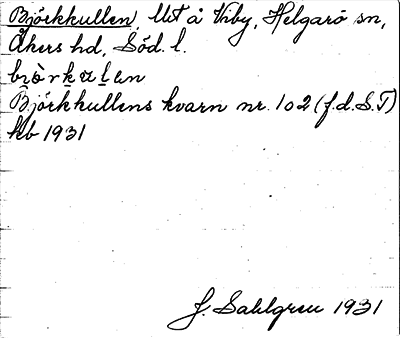 Björkkullen, llt å Viby, Helgarö sn,
Åkers hd, Söd. l.
Björkkullens kvarn nr. 102 (f.d.S.T)
kb 1931
J. Sahlgren 1931